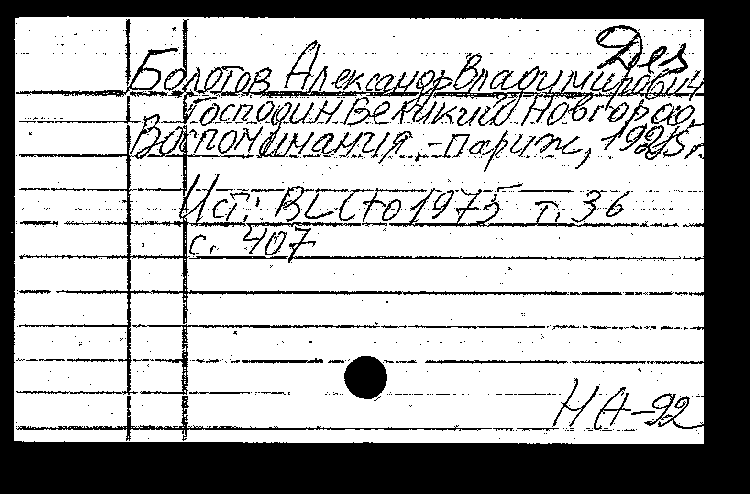 Дез
Болотов Александр Владимирович
Господин Великий Новгород.
Воспоминания. - Париж, 1925 г.
Ист: BL (to 1975 т. 36
с. 407
НА-22